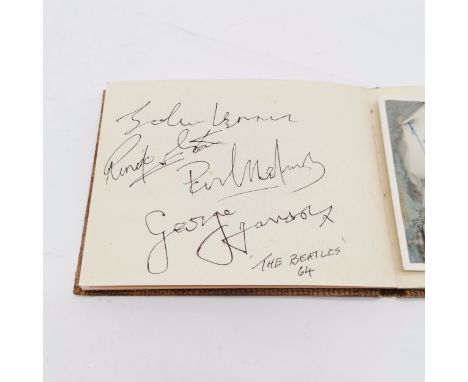 John Lennon
Ringo Starr
Paul McCartney
George Harrison x
THE BEATLES'
64